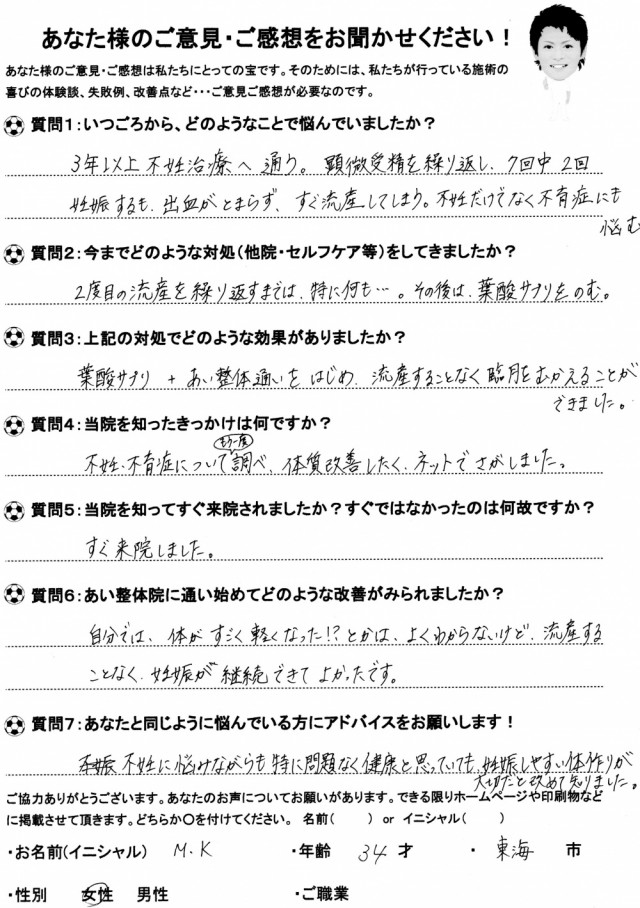 あなた様のご意見・ご感想をお聞かせください！
あなた様のご意見・ご感想は私たちにとっての宝です。そのためには、私たちが行っている施術の
喜びの体験談、失敗例、改善点など・・・ご意見ご感想が必要なのです。
質問1：いつごろから、どのようなことで悩んでいましたか？
3年以上 不妊治療へ通う。顕微受精を繰り返し、7回中2回
妊娠するも、出血がとまらず、すぐ流産してしまう。不妊だけでなく不育症にも
悩む
質問2：今までどのような対処（他院・セルフケア等）をしてきましたか？
2度目の流産を繰り返すまでは、特に何も…。その後は、葉酸サプリをのむ。
質問3：上記の対処でどのような効果がありましたか？
葉酸サプリ + あい整体通いをはじめ、流産することなく臨月をむかえることが
できました。
質問4：当院を知ったきっかけは何ですか？
もう一度
不妊・不育症について調べ、体質改善したく、ネットでさがしました。
質問5：当院を知ってすぐ来院されましたか？すぐではなかったのは何故ですか？
すぐ来院しました。
質問6：あい整体院に通い始めてどのような改善がみられましたか？
自分では、体がすごく軽くなった!?とかは、よくわからないけど、流産する
ことなく、妊娠が継続できてよかったです。
質問7：あなたと同じように悩んでいる方にアドバイスをお願いします！
不妊に悩みながらも特に問題なく健康と思っていても、妊娠しやすい体作りが
大切だと改めて知りました。
ご協力ありがとうございます。あなたのお声についてお願いがあります。できる限りホームページや印刷物など
に掲載させて頂きます。どちらか〇を付けてください。 名前（　　） or イニシャル（　　）
・お名前(イニシャル) M.K ・年齢 34 才 ・ 東海 市
・性別 女性 男性 ・ご職業